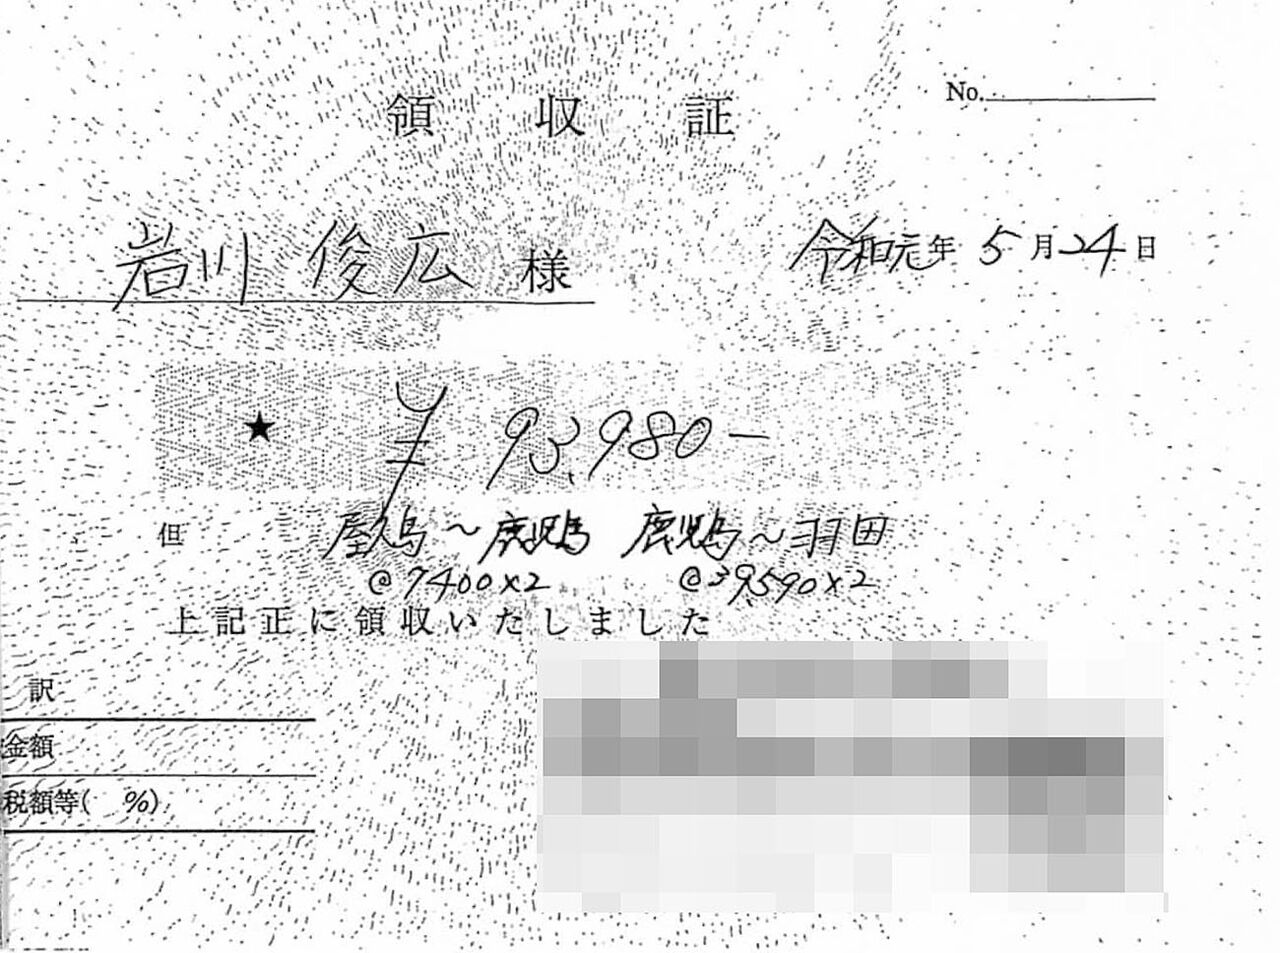 領収証
No.
岩川 俊広 様
令和元年 5月24日
★ ¥93,980-
但 屋久島～鹿児島 鹿児島～羽田
@7400×2 @39,590×2
上記正に領収いたしました
訳
金額
税額等( %)